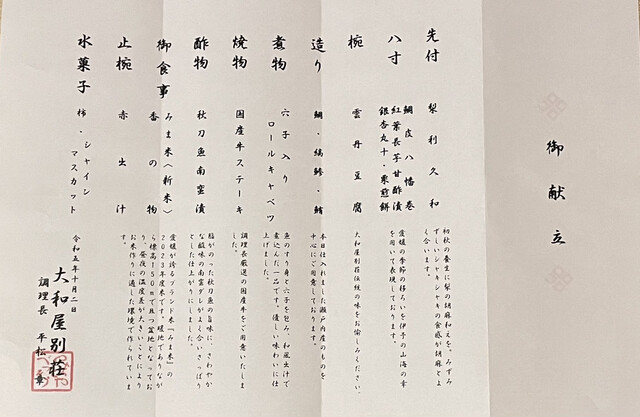 御献立
先付
梨利久和
初秋の養生に梨の胡麻和えを。みずみ
ずしいシャキシャキの食感が胡麻とよ
く合います。
八寸
鯛皮八幡巻
紅葉長芋甘酢漬
銀杏丸十・栗煎餅
愛媛の季節の移ろいを伊予の山海の幸
を用いて表現しております。
椀
雲丹豆腐
大和屋別荘伝統の味をお愉しみください。
造り
鯛・縞鯵・鮪
本日仕入れました瀬戸内産のものを
中心にご用意しております。
煮物
穴子入り
ロールキャベツ
魚のすり身と穴子を包み、和風出汁で
煮込んだ一品です。優しい味わいに仕
上げました。
焼物
国産牛ステーキ
調理長厳選の国産牛をご用意いたしま
した。
酢物
秋刀魚南蛮漬
脂がのった秋の魚の旨味に、さわやか
な酸味の南蛮ダレがよく合いさっぱり
とした仕上がりにしました。
御食事
みま米〈新米〉
香の物
愛媛が誇るブランド米「みま米」の
2023年度米です。暖地でありなが
ら標高150mで且つ盆地となってお
り、昼夜の温度差が大きいことにより
お米作りに適した環境で作られていま
す。
止椀
赤出汁
水菓子
柿・シャイン
マスカット
令和五年十月二日
大和屋別荘
調理長 平松一章